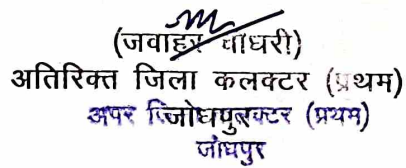 (जवाहर चौधरी)
अतिरिक्त जिला कलक्टर (प्रथम)
अपर जिला कलक्टर (प्रथम)
जोधपुर
जोधपुर